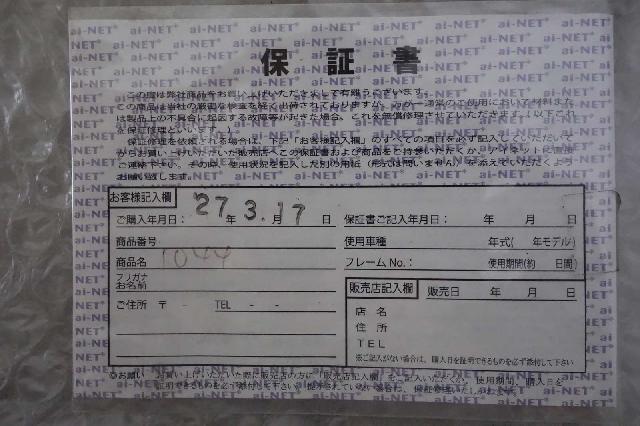 保証書
この度は弊社商品をお買い上げいただきまして有難うございます。
この商品は当社の厳密な検査を経て出荷されておりますが、万が一通常のご使用において材料また
は製品上の不具合に起因する故障等が起きた場合、これを無償修理させていただきます。(以下これ
を保証修理といいます。)
保証修理を依頼される場合は、下記「お客様記入欄」のすべての項目を必ず記入していただいて
からお買い上げいただいた販売店へこの保証書および商品をご持参いただくか、アイネットに直接
ご連絡下さい。その時、使用状況を記入した別の用紙(形式は問いません)を添えていただくよう
お願い致します。
お客様記入欄
ご購入年月日: 27年 3.月 17日
保証書ご記入年月日: 年 月 日
商品番号
使用車種 年式( 年モデル)
商品名 1044
フレームNo.: 使用期間(約 日間)
フリガナ
お名前
ご住所 〒 - TEL - -
販売店記入欄 販売日 年 月 日
店名
住所
TEL
※ご記入がない場合は、購入日を証明できるものを必ず添付して下さい
◎お願い お買い上げいただいた際に販売店の方に「販売店記入欄」をご記入いただくか、使用期間、購入日を
証明できるものを必ず添付して下さい。
ai-NET